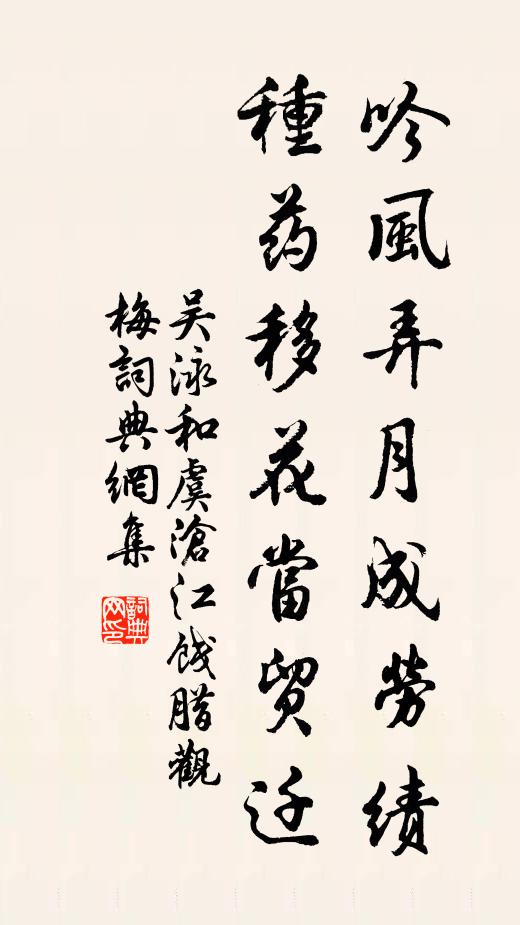 吟風弄月成勞績
種药移花當贸迁
吴泳和虞滄江饯腊觀
梅詞典網集
詞典网印